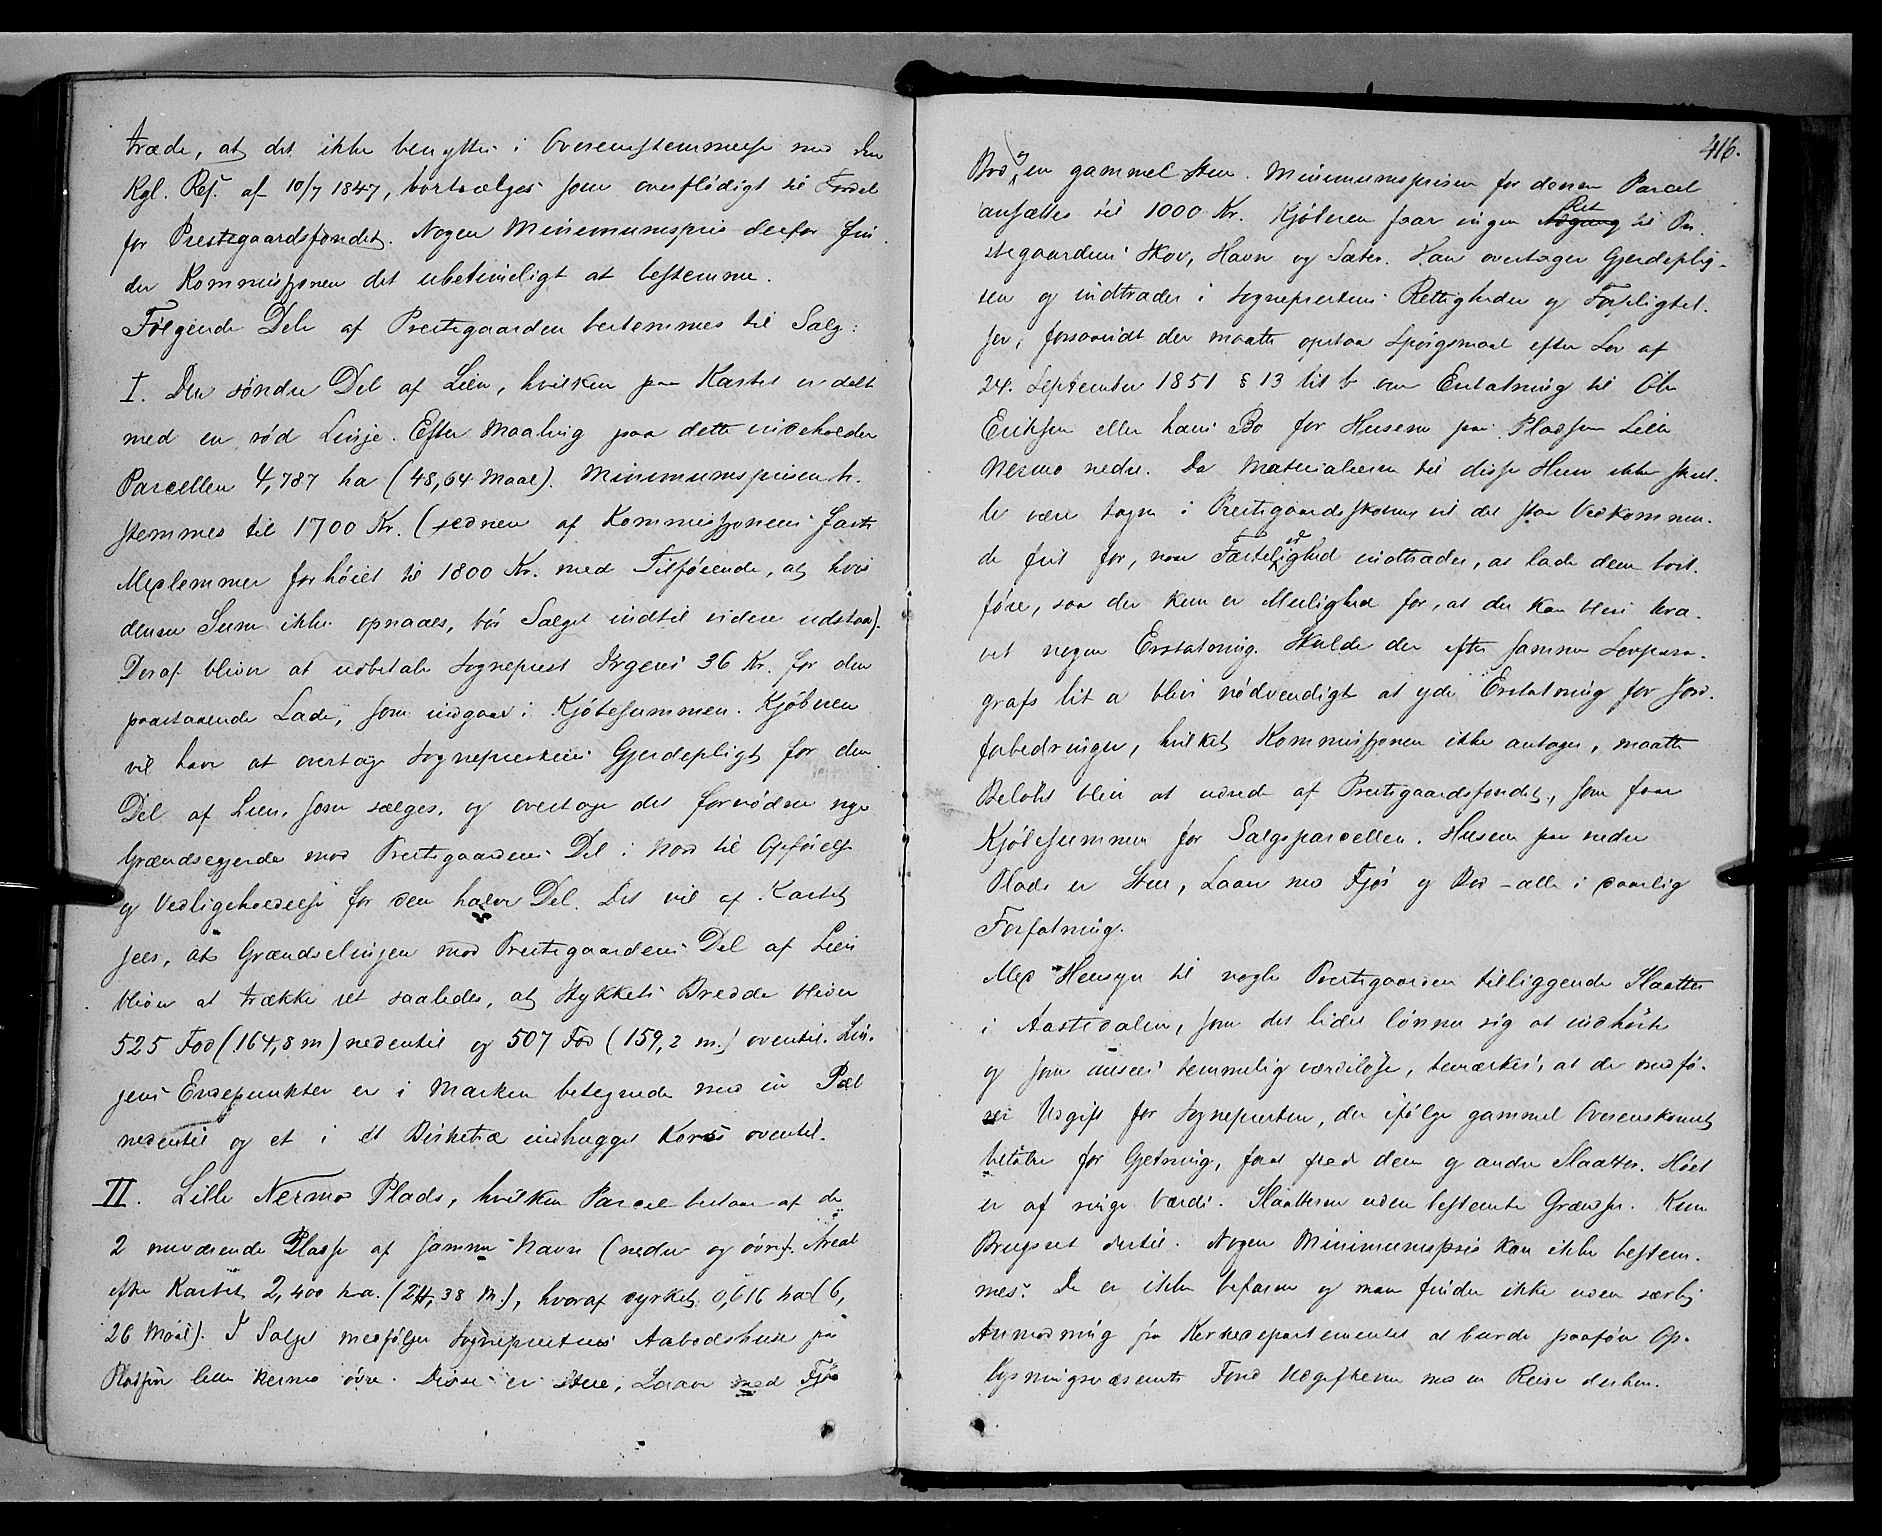 træde, at det ikke benyttes i Overensstemmelse med den
Kgl. Res. af 10/7 1847, bortsælges som overflødigt til Fordel
for Prestegaardsfondet. Nogen Minimumspris derfor fin-
der Kommissjonen det ubetimeligt at bestemme.
Følgende Dele af Prestegaarden bestemmes til Salg:
I. Den søndre Del af Lien, hvilken paa Kartet er delt
med en rød Linje. Efter Maaling paa dette indeholder
Parcellen 4,787 ha (48,64 Maal). Minimumsprisen be-
stemmes til 1700 Kr. (sednere af Kommissjonens faste
Medlemmer forhøiet til 1800 Kr. med Tilføiende, at hvis
denne Sum ikke opnaaes, bør Salget indtil videre udstaa).
Deraf bliver at udbetale Sogneprest Irgens 36 Kr. for den
paastaaende Lade, som indgaar i Kjøbesummen. Kjøberen
vil have at overtage Sogneprestens Gjerdepligt for den
Del af Lien, som sælges, og overtage det fornødne nye
Grændsegjerde mod Prestegaardens Del i Nord til Opførelse
og Vedligeholdelse for den halve Del. Det vil af Kartet
sees, at Grændselinjen mod Prestegaardens Del af Lien
bliver at trække ret saaledes, at Stykkets Bredde bliver
525 Fod (164,8 m) nedentil og 507 Fod (159,2 m.) oventil. Lin-
jens Endepunkter er i Marken betegnede med en Pæl
nedentil og et i et Birketræ indhugget Kors oventil.
II. Lille Nermo Plads, hvilken Parcel bestaar af de
2 nuværende Pladse af samme Navn (nedre og øvre). Areal
efter Kartet 2,400 ha. (24,38 M.), hvoraf dyrket 0,616 ha (6,
26 Maal). I Salget medfølger Sogneprestens Aabodshuse paa
Pladsen lille Nermo øvre. Disse er Stue, Laave med Fjøs
416.
Bod og en gammel Sten. Minimumsprisen for denne Parcel
ansættes til 1000 Kr. Kjøberen faar ingen Adgang Ret til Pre-
stegaardens Skov, Havn og Sæter. Han overtager Gjerdeplig-
ten og indtræder i Sogneprestens Rettigheder og Forpligtel-
ser, forsaavidt der maatte opstaa Spørgsmaal efter Lov af
24. September 1851 § 13 lit b om Erstatning til Ole
Eriksen eller hans Bo for Husene paa Pladsen Lille
Nermo nedre. Da Materialierne til disse Huse ikke skul-
le være tagne i Prestegaardsskoven, vil det staa Vedkommen-
de frit for, naar Fardelighed indtræder, at lade dem bort-
føre, saa der kun er Mulighed for, at der kan blive kra-
vet nogen Erstatning. Skulde der efter samme Lovpara-
grafs lit a blive nødvendigt at yde Erstatning for Jord-
forbedringer, hvilket Kommissjonen ikke antager, maatte
Beløbet blive at udrede af Prestegaardsfondet, som faar
Kjøbesummen for Salgsparcellen. Husene paa nedre
Plads er Stue, Laave med Fjøs og Bod – alle i daarlig
Forfatning.
Med Hensyn til nogle Prestegaarden tilliggende Slaatter
i Aastedalen, som det lidet lønner sig at indhøste
og som ansees temmelig værdiløse, bemærkes, at de medfø-
rer Udgift for Sognepresten, der ifølge gammel Overenskomst
betaler for Gjetning, faar fred dem og andre Slaatter. Høet
er af ringe Værdi. Slaatterne uden bestemte Grændser. Kun
Brugsret dertil. Nogen Minimumspris kan ikke bestem-
mes. De er ikke befarne og man finder ikke uden særlig
Anmodning fra Kirkedepartementet at burde paaføre Op-
lysningsvæsenets Fond Udgifterne med en Reise derhen.